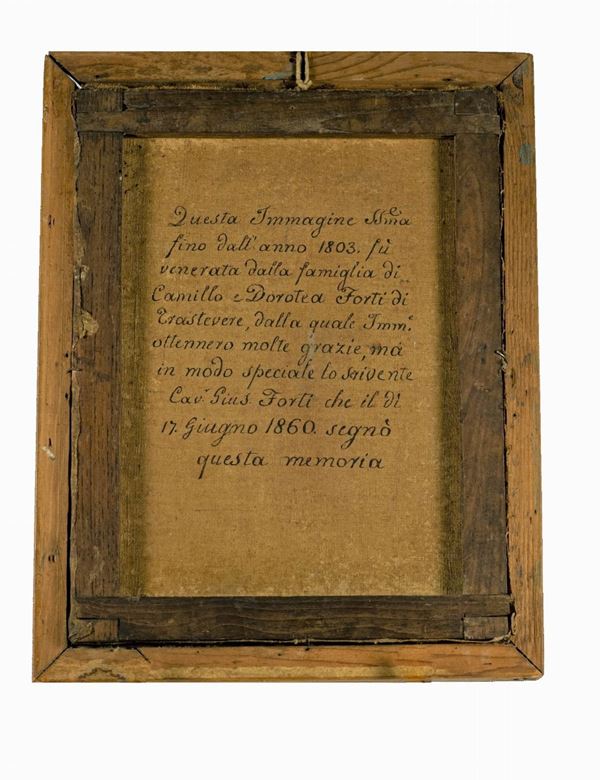 Questa Immagine SSm̃a
fino dall'anno 1803. fù
venerata dalla famiglia di
Camillo e Dorotea Forti di
Trastevere, dalla quale Imm.ᵉ
ottennero molte grazie, má
in modo speciale lo scrivente
Cav.ʳ Gius. Forti che il dì
17. Giugno 1860. segnò
questa memoria